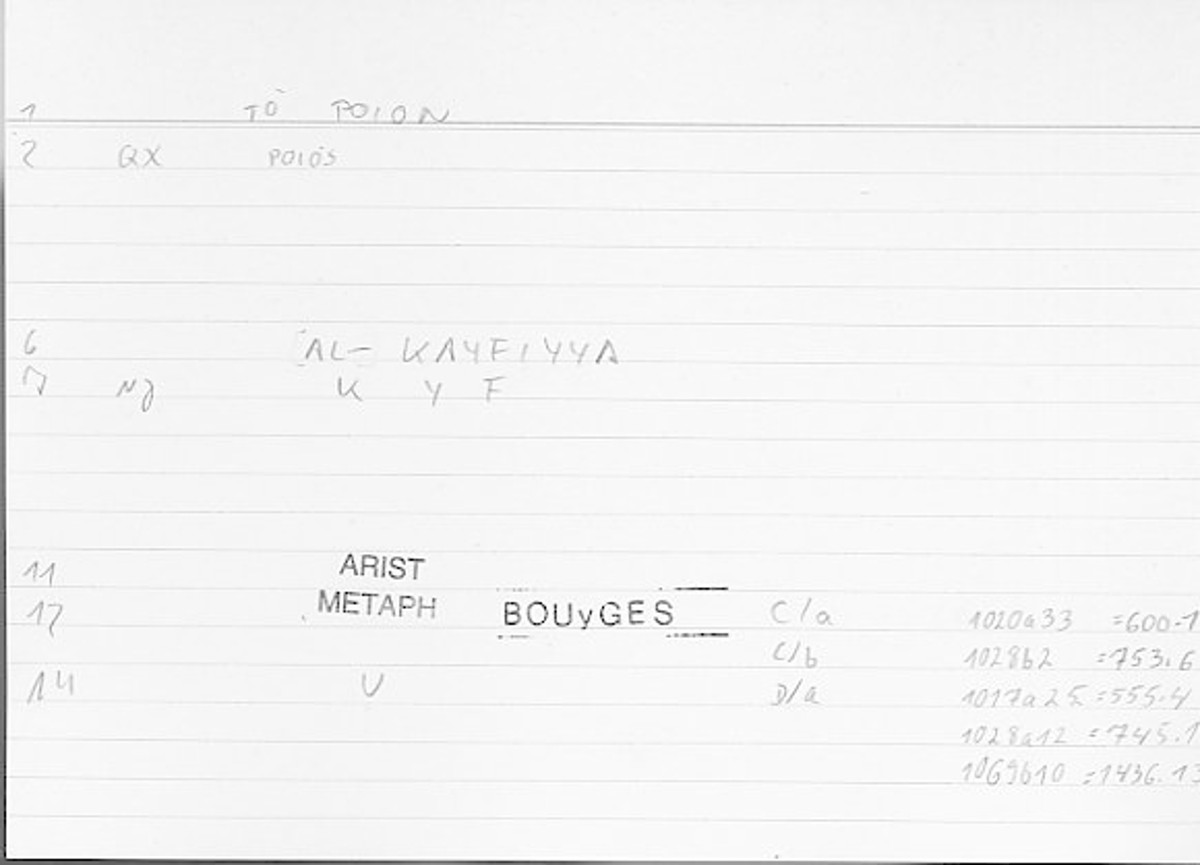 1 TÒ POION
2 QX POIÓS
6 AL- KAYFIYYA
7 NJ K Y F
11 ARIST
12 METAPH BOUyGES C/a 1020a33 =600.1
C/b 1028b2 =753.6
14 V D/a 1017a25 =555.4
1028a12 =745.1
1069b10 =1436.13